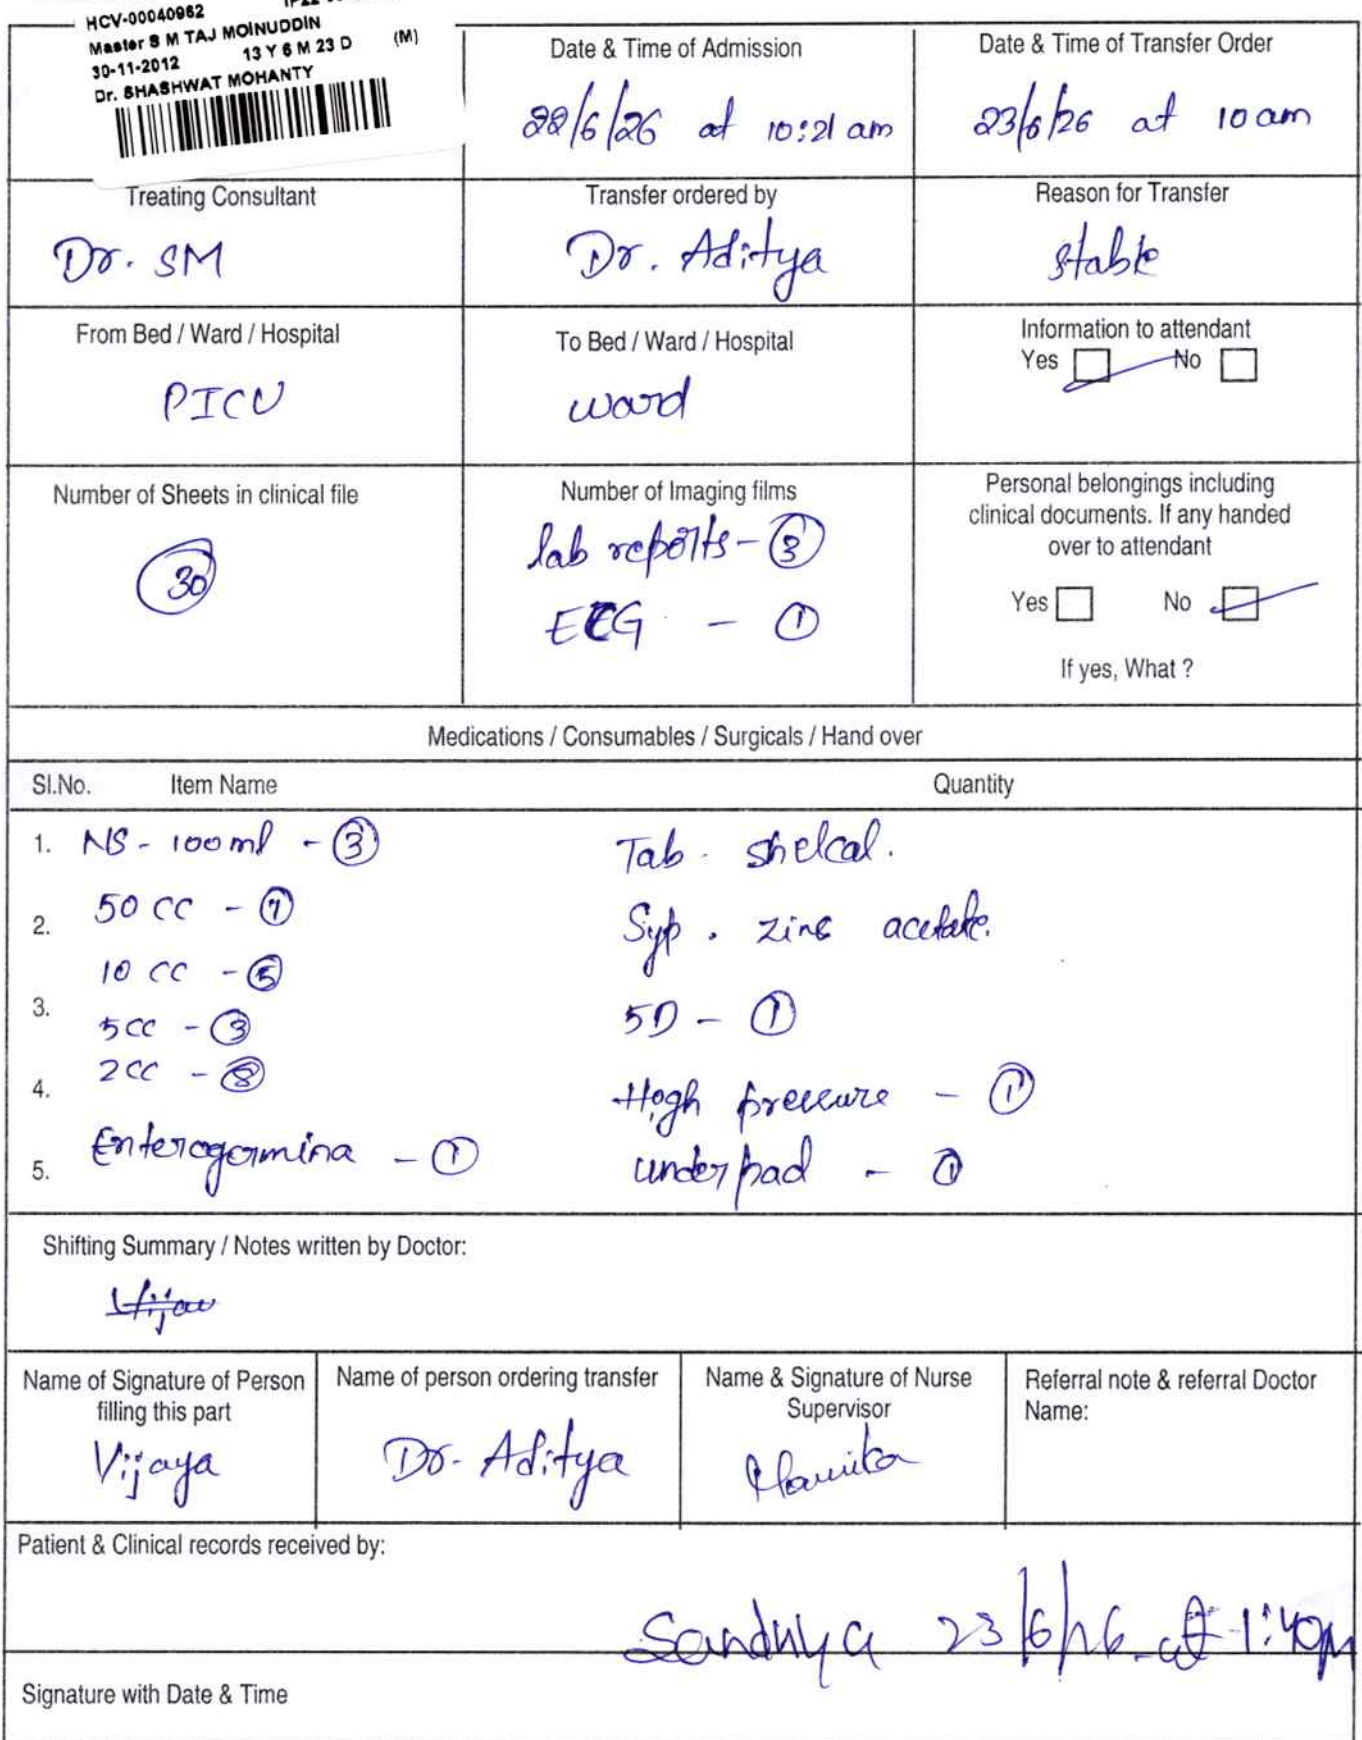 HCV-00040962
Master S M TAJ MOINUDDIN
30-11-2012 13 Y 6 M 23 D (M)
Dr. SHASHWAT MOHANTY
Date & Time of Admission
22/6/26 at 10:21 am
Date & Time of Transfer Order
23/6/26 at 10 am
Treating Consultant
Dr. SM
Transfer ordered by
Dr. Aditya
Reason for Transfer
stable
From Bed / Ward / Hospital
PICU
To Bed / Ward / Hospital
ward
Information to attendant
Yes No
Number of Sheets in clinical file
30
Number of Imaging films
lab reports - 3
ECG - 1
Personal belongings including
clinical documents. If any handed
over to attendant
Yes No
If yes, What ?
Medications / Consumables / Surgicals / Hand over
Sl.No. Item Name Quantity
1. NS - 100 ml - 3 Tab. shelcal.
2. 50 CC - 7 Syp. zinc acetate.
10 CC - 5
3. 5D - 1
5 CC - 3
4. 2 CC - 8 High pressure - 1
5. Enterogermina - 1 under pad - 1
Shifting Summary / Notes written by Doctor:
Name of Signature of Person
filling this part
Vijaya
Name of person ordering transfer
Dr. Aditya
Name & Signature of Nurse
Supervisor
Referral note & referral Doctor
Name:
Patient & Clinical records received by:
Sandhya 23/6/26 at 1:40pm
Signature with Date & Time